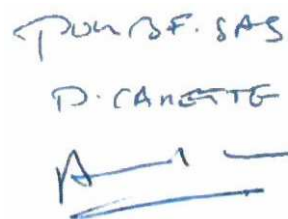 Pour BF. SAS
D. CANETTE